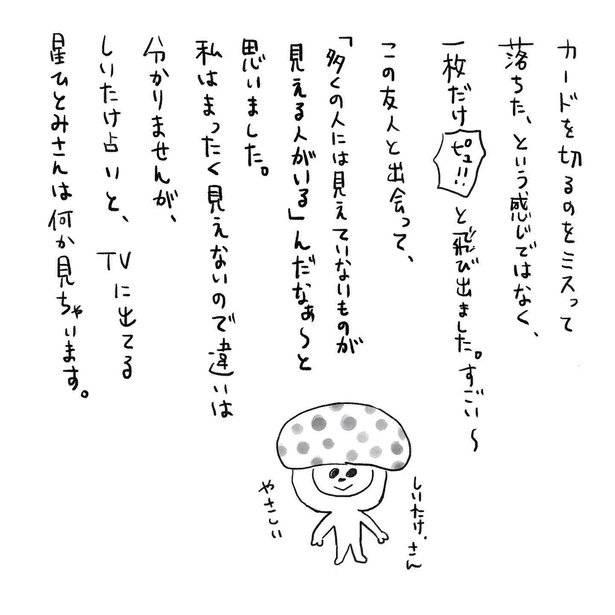 カードを切るのをミスって
落ちた、という感じではなく、
一枚だけピュ!!と飛び出ました。すごい〜
この友人と出会って、
「多くの人には見えていないものが
見える人がいる」んだなぁ〜と
思いました。
私はまったく見えないので違いは
分かりませんが、
しいたけ占いと、TVに出てる
星ひとみさんは何か見ちゃいます。
しいたけ.さん
やさしい